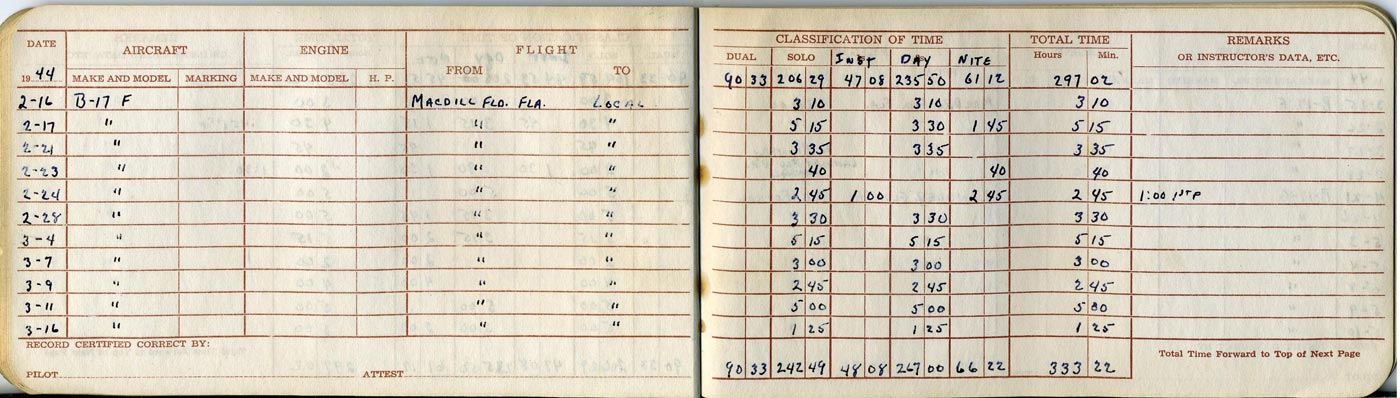 DATE AIRCRAFT ENGINE FLIGHT CLASSIFICATION OF TIME TOTAL TIME REMARKS
DUAL SOLO INST DAY NITE Hours Min. OR INSTRUCTOR'S DATA, ETC.
1944 MAKE AND MODEL MARKING MAKE AND MODEL H. P. FROM TO 90 33 206 29 47 08 235 50 61 12 297 02
2-16 B-17 F MACDILL FLD. FLA. LOCAL 3 10 3 10 3 10
2-17 " " " 5 15 3 30 1 45 5 15
2-21 " " " 3 35 3 35 3 35
2-23 " " " 40 40 40
2-24 " " " 2 45 1 00 2 45 2 45 1:00 1ST P
2-28 " " " 3 30 3 30 3 30
3-4 " " " 5 15 5 15 5 15
3-7 " " " 3 00 3 00 3 00
3-9 " " " 2 45 2 45 2 45
3-11 " " " 5 00 5 00 5 00
3-16 " " " 1 25 1 25 1 25
RECORD CERTIFIED CORRECT BY: Total Time Forward to Top of Next Page
PILOT ATTEST 90 33 242 49 48 08 267 00 66 22 333 22